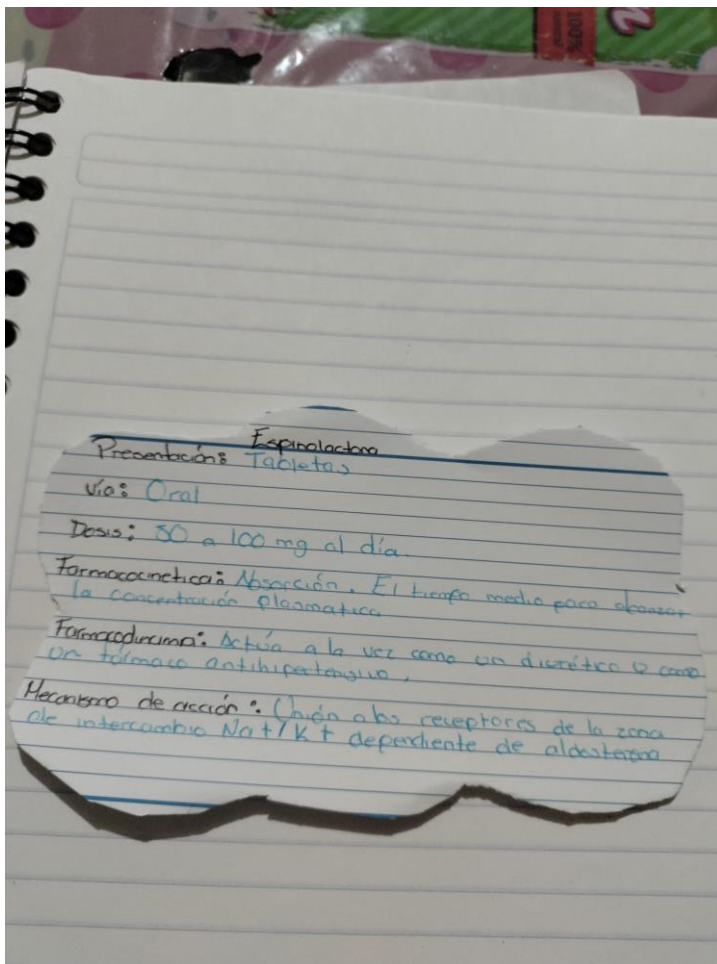 100%
Espinolactona
Presentación: Tabletas
Vía: Oral
Dosis: 50 a 100 mg al día.
Farmacocinetica: Absorción. El tiempo medio para alcanzar
la concentración plasmatica
Farmacodinamia: Actúa a la vez como un diurético y como
un fármaco antihipertensivo.
Mecanismo de acción: Unión a los receptores de la zona
de intercambio Na+/K+ dependiente de aldosterona